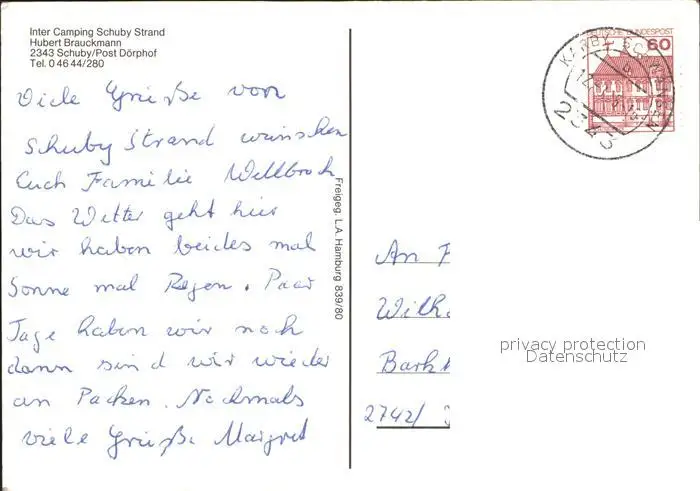 Inter Camping Schuby Strand
Hubert Brauckmann
2343 Schuby/Post Dörphof
Tel. 0 46 44/280
Viele Grüße von
Schuby Strand wünschen
Euch Familie Wellbrock
Das Wetter geht hier
wir haben beides mal
Sonne mal Regen. Paar
Tage haben wir noch
dann sind wir wieder
am Packen. Nochmals
viele Grüße Margret
Freigeg. L.A. Hamburg 839/80
DEUTSCHE BUNDESPOST
60
KARBY
2343
An F
Wilh
Barkh
2742/
privacy protection
Datenschutz